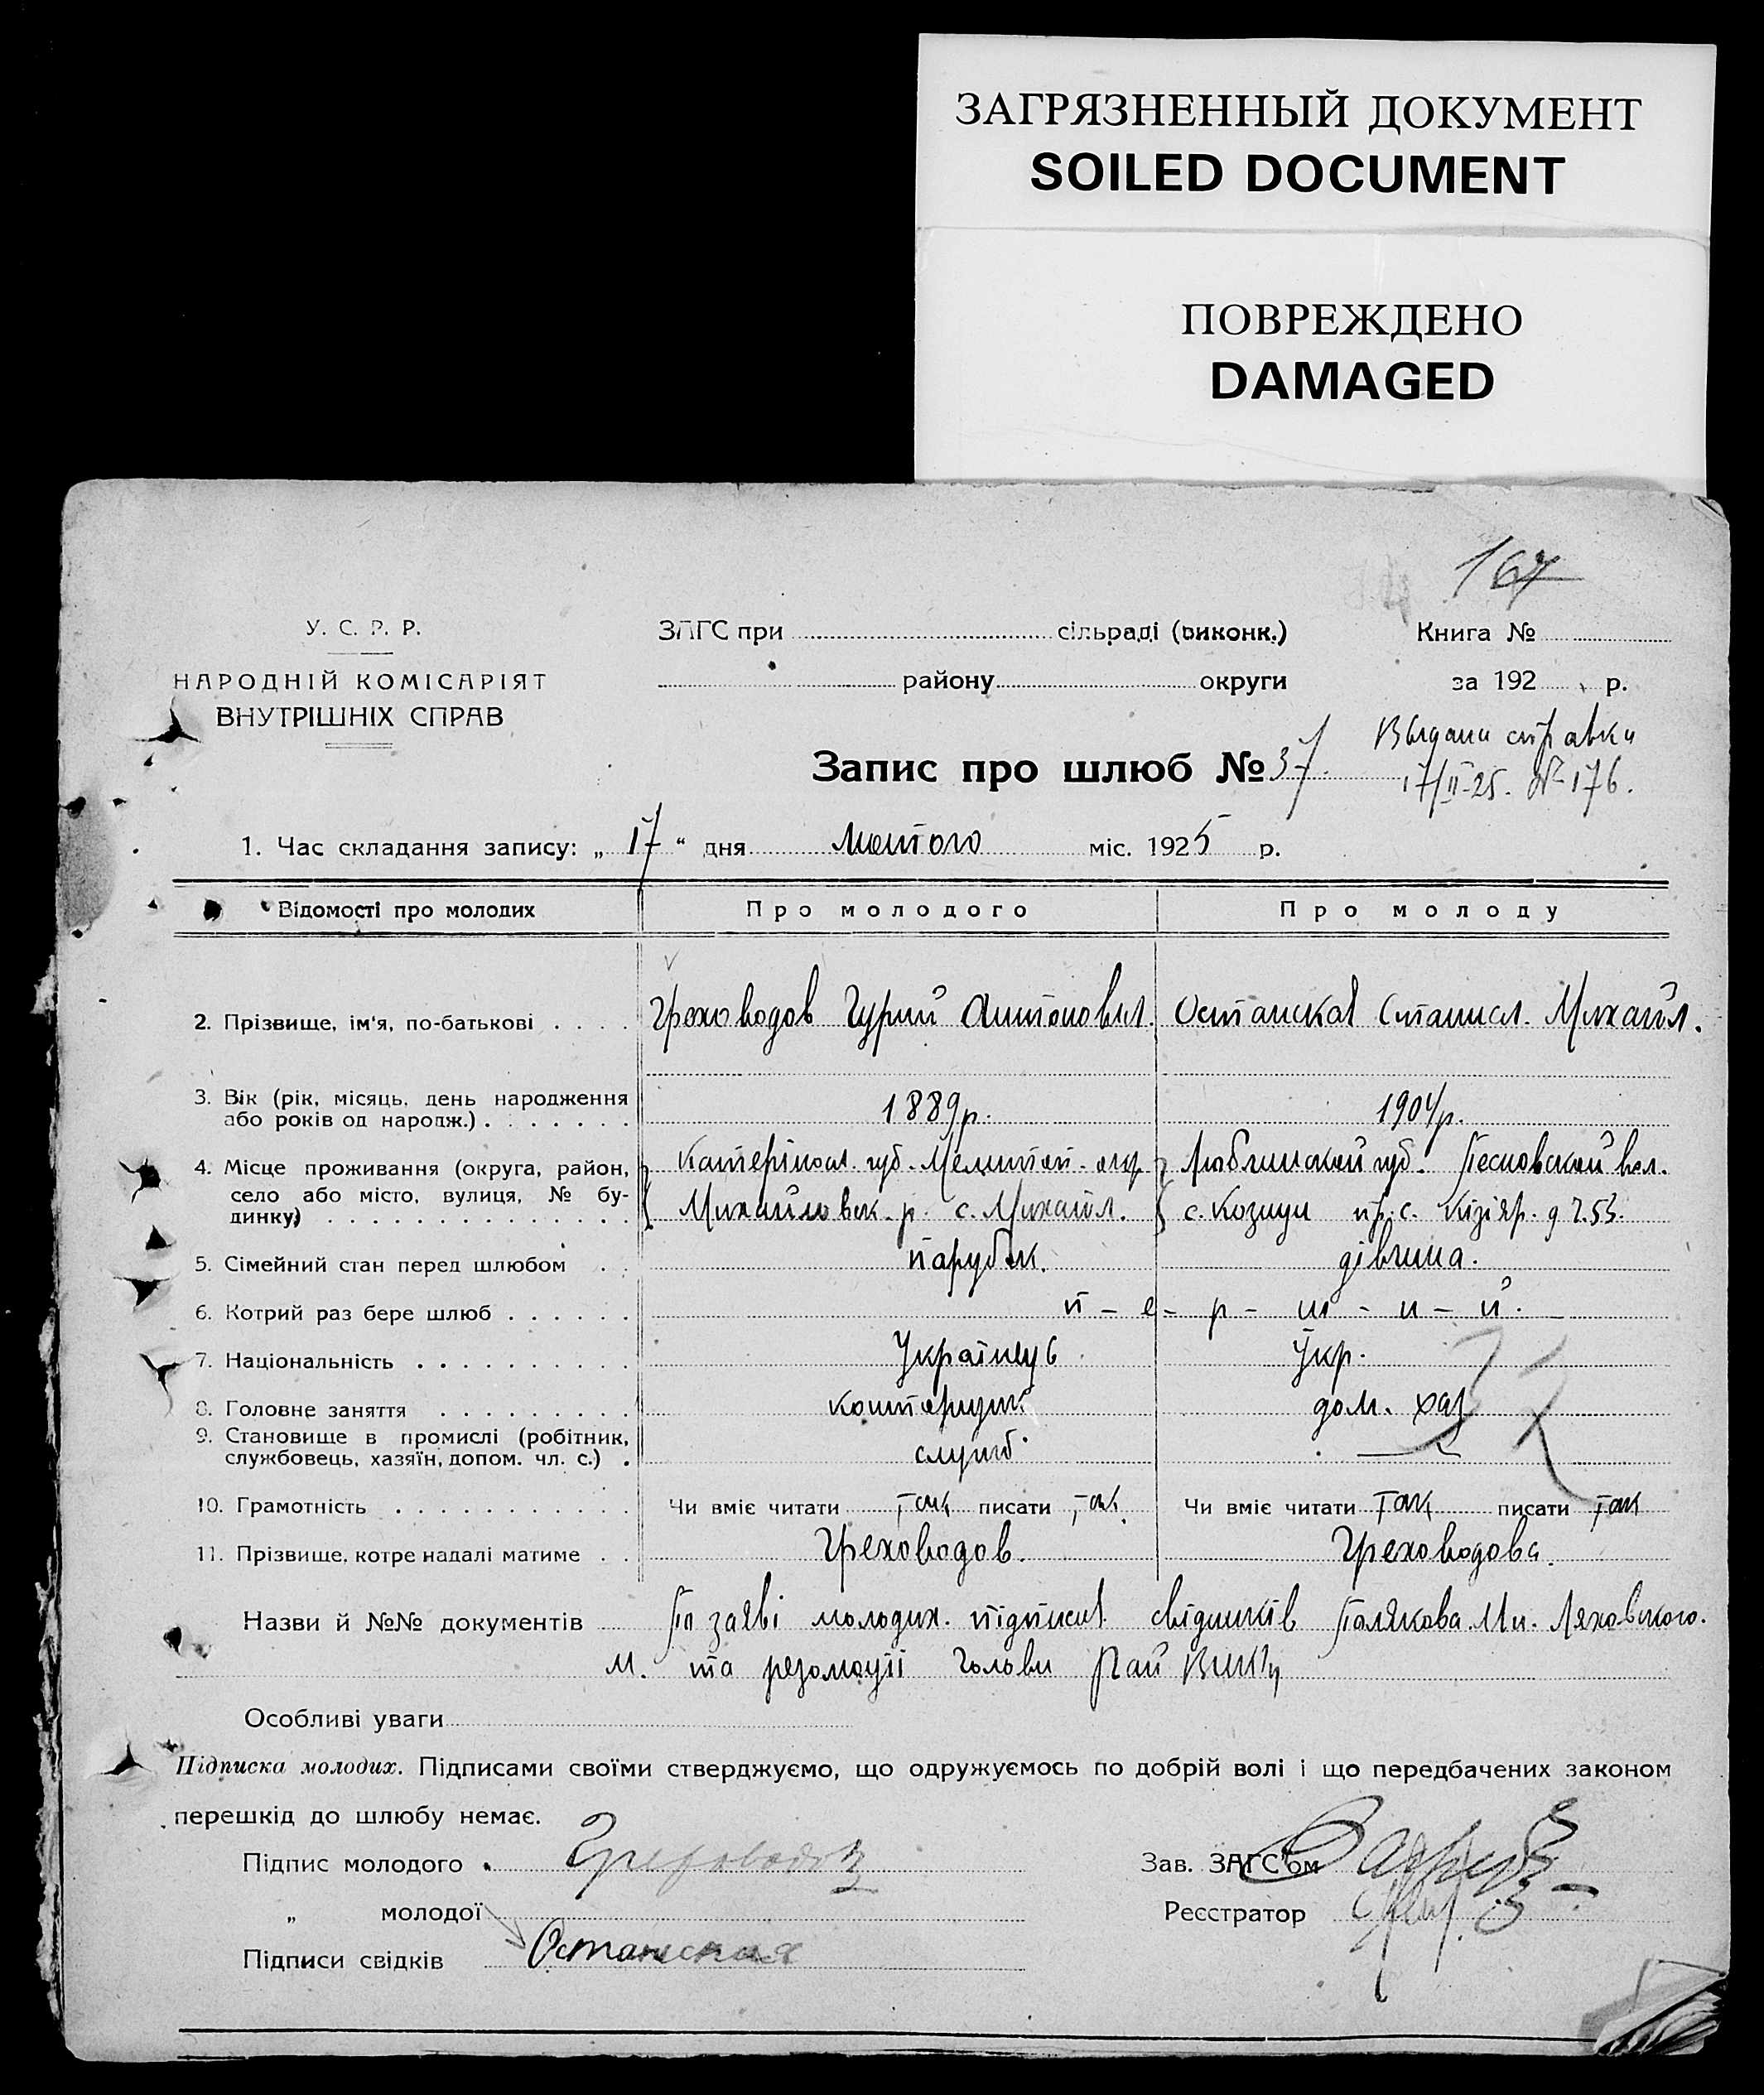 ЗАГРЯЗНЕННЫЙ ДОКУМЕНТ
SOILED DOCUMENT
ПОВРЕЖДЕНО
DAMAGED
167
У. С. Р. Р.
НАРОДНІЙ КОМІСАРІЯТ
ВНУТРІШНІХ СПРАВ
ЗАГС при сільраді (виконк.)
району округи
Книга №
за 192 р.
Запис про шлюб № 37.
Выдана справка
17/II-25. № 176.
1. Час складання запису: „ 17 “ дня Лютого міс. 1925 р.
Відомості про молодих Про молодого Про молоду
2. Прізвище, ім'я, по-батькові . . . . Греховодов Гурий Антонович. Останская Станисл. Михайл.
3. Вік (рік, місяць, день народження
або років од народж.) . . . . . . . 1889р. 1904р.
4. Місце проживання (округа, район,
село або місто, вулиця, № бу-
динку) Катеріносл. губ. Мелитоп. окр. Михайловск. р. с. Михайл. Люблинской губ. вол. с. пр. с. д 253.
5. Сімейний стан перед шлюбом . . парубок. дівчина.
6. Котрий раз бере шлюб . . . . . . п - е - р - ш - и - й.
7. Національність . . . . . . . . . . Українець Укр.
8. Головне заняття . . . . . . . . . дом. хаз
9. Становище в промислі (робітник,
службовець, хазяїн, допом. чл. с.) . служб. —
32
10. Грамотність . . . . . . . . . . . Чи вміє читати так писати так Чи вміє читати так писати так
11. Прізвище, котре надалі матиме . . Греховодов. Греховодова.
Назви й №№ документів По заяві молодих. підписці свідчиків Полякова Ми. Ляховского.
М. та резолюції Голови Рай Вику
Особливі уваги
Підписка молодих. Підписами своїми стверджуємо, що одружуємось по добрій волі і що передбачених законом
перешкід до шлюбу немає.
Підпис молодого Греховодов
Зав. ЗАГС'ом
„ молодої
Реєстратор
Підписи свідків Останская